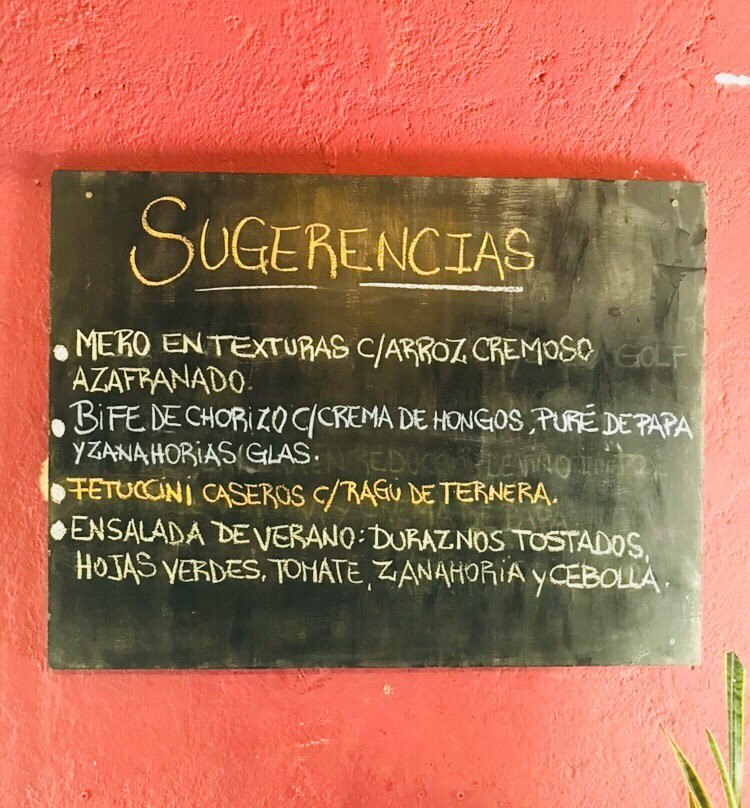 SUGERENCIAS
MERO EN TEXTURAS C/ARROZ CREMOSO
AZAFRANADO.
BIFE DE CHORIZO C/CREMA DE HONGOS, PURÉ DE PAPA
Y ZANAHORIAS GLAS.
FETUCCINI CASEROS C/RAGÚ DE TERNERA.
ENSALADA DE VERANO: DURAZNOS TOSTADOS,
HOJAS VERDES, TOMATE, ZANAHORIA y CEBOLLA.